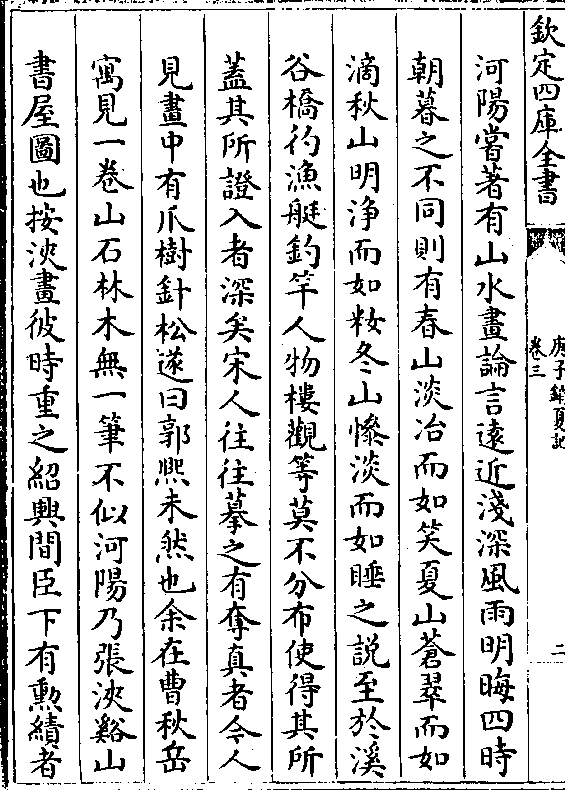 欽定四庫全書
庚子銷夏記
卷三
二
河陽嘗著有山水畫論言遠近淺深風雨明晦四時
朝暮之不同則有春山淡冶而如笑夏山蒼翠而如
滴秋山明浄而如粧冬山慘淡而如睡之説至於溪
谷橋彴漁艇釣竿人物樓觀等莫不分布使得其所
葢其所證入者深矣宋人往往摹之有奪真者令人
見畫中有爪樹針松遂曰郭熈未然也余在曹秋岳
寓見一卷山石林木無一筆不似河陽乃張浹谿山
書屋圖也按浹畫彼時重之紹興間臣下有勲績者